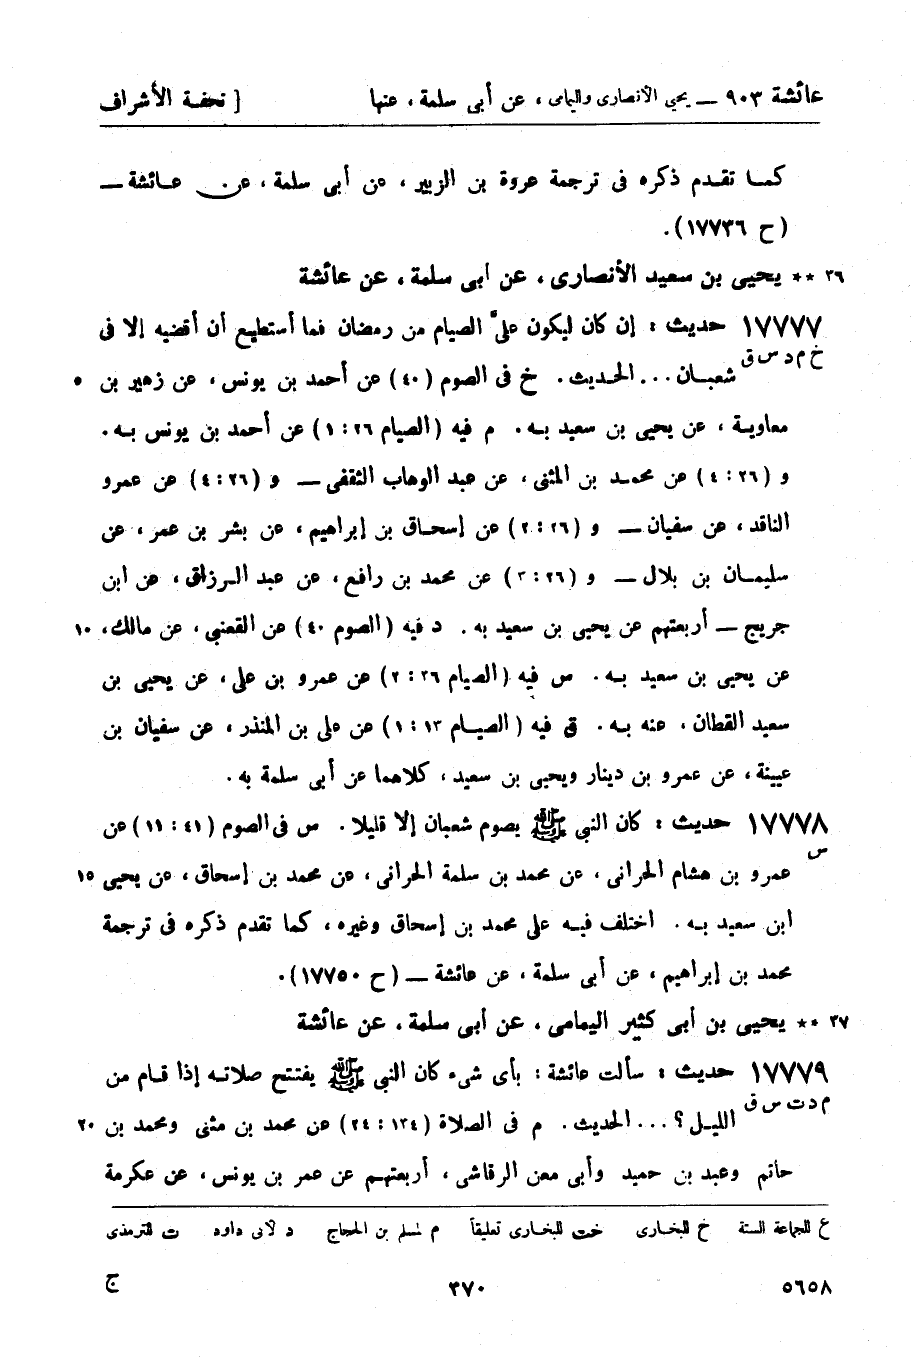 عائشة ٩٠٣ — يحيى الأنصارى واليمامى، عن أبى سلمة، عنها [ تحفة الأشراف
كما تقدم ذكره فى ترجمة عروة بن الزبير، عن أبى سلمة، عن عائشة —
(ح ١٧٧٣٦).
٣٦ ** يحيى بن سعيد الأنصارى، عن أبى سلمة، عن عائشة
١٧٧٧٧ حديث : إن كان ليكون علىَّ الصيام من رمضان فما أستطيع أن أقضيه إلا فى
خ م د س ق شعبان ... الحديث. خ فى الصوم (٤٠) عن أحمد بن يونس، عن زهير بن ٥
معاوية، عن يحيى بن سعيد به. م فيه (الصيام ٢٦ : ١) عن أحمد بن يونس به.
و (٢٦ : ٤) عن محمد بن المثنى، عن عبد الوهاب الثقفى — و (٢٦ : ٤) عن عمرو
الناقد، عن سفيان — و (٢٦ : ٢) عن إسحاق بن إبراهيم، عن بشر بن عمر، عن
سليمان بن بلال — و (٢٦ : ٣) عن محمد بن رافع، عن عبد الرزاق، عن ابن
جريج — أربعتهم عن يحيى بن سعيد به. د فيه (الصوم ٤٠) عن القعنبى، عن مالك، ١٠
عن يحيى بن سعيد به. س فيه (الصيام ٣٦ : ٢) عن عمرو بن على، عن يحيى بن
سعيد القطان، عنه به. ق فيه (الصيام ١٣ : ١) عن على بن المنذر، عن سفيان بن
عيينة، عن عمرو بن دينار ويحيى بن سعيد، كلاهما عن أبى سلمة به.
١٧٧٧٨ حديث : كان النبى ﷺ يصوم شعبان إلا قليلا. س فى الصوم (٤١ : ١١) عن
س
عمرو بن هشام الحرانى، عن محمد بن سلمة الحرانى، عن محمد بن إسحاق، عن يحيى ١٥
ابن سعيد به. اختلف فيه على محمد بن إسحاق وغيره، كما تقدم ذكره فى ترجمة
محمد بن إبراهيم، عن أبى سلمة، عن عائشة — (ح ١٧٧٥٠).
٣٧ ** يحيى بن أبى كثير اليمامى، عن أبى سلمة، عن عائشة
١٧٧٧٩ حديث : سألت عائشة : بأى شىء كان النبى ﷺ يفتتح صلاته إذا قام من
م د ت س ق الليل؟ ... الحديث. م فى الصلاة (١٣٤ : ٢٤) عن محمد بن مثنى ومحمد بن ٢٠
حاتم وعبد بن حميد وأبى معن الرقاشى، أربعتهم عن عمر بن يونس، عن عكرمة
ع للجماعة الستة خ للبخارى خت للبخارى تعليقاً م لمسلم بن الحجاج د لأبى داود ت للترمذى
٥٦٥٨ ٣٧٠ ج